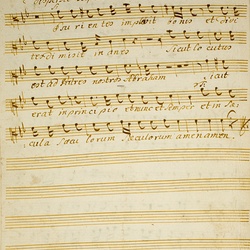 Esurientes implevit bonis et divi
tes dimisit inanes Sicut locutus
est ad Patres nostros Abraham Sicut
erat in principio et nunc et semper et in Sæ
cula Sæculorum sæculorum amen amen